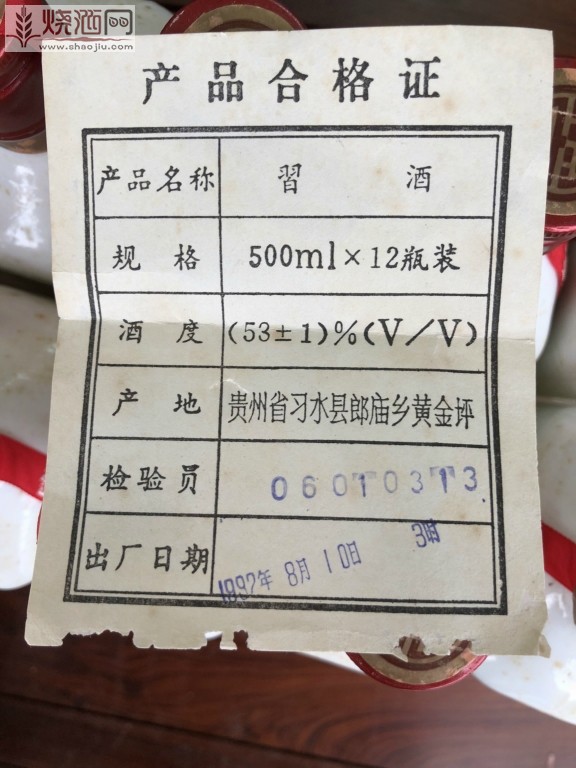 烧酒网
www.shaojiu.com
产品合格证
产品名称 習酒
规格 500ml×12瓶装
酒度 (53±1)%(V/V)
产地 贵州省习水县郎庙乡黄金坪
检验员 06010313
出厂日期 1997年8月10日